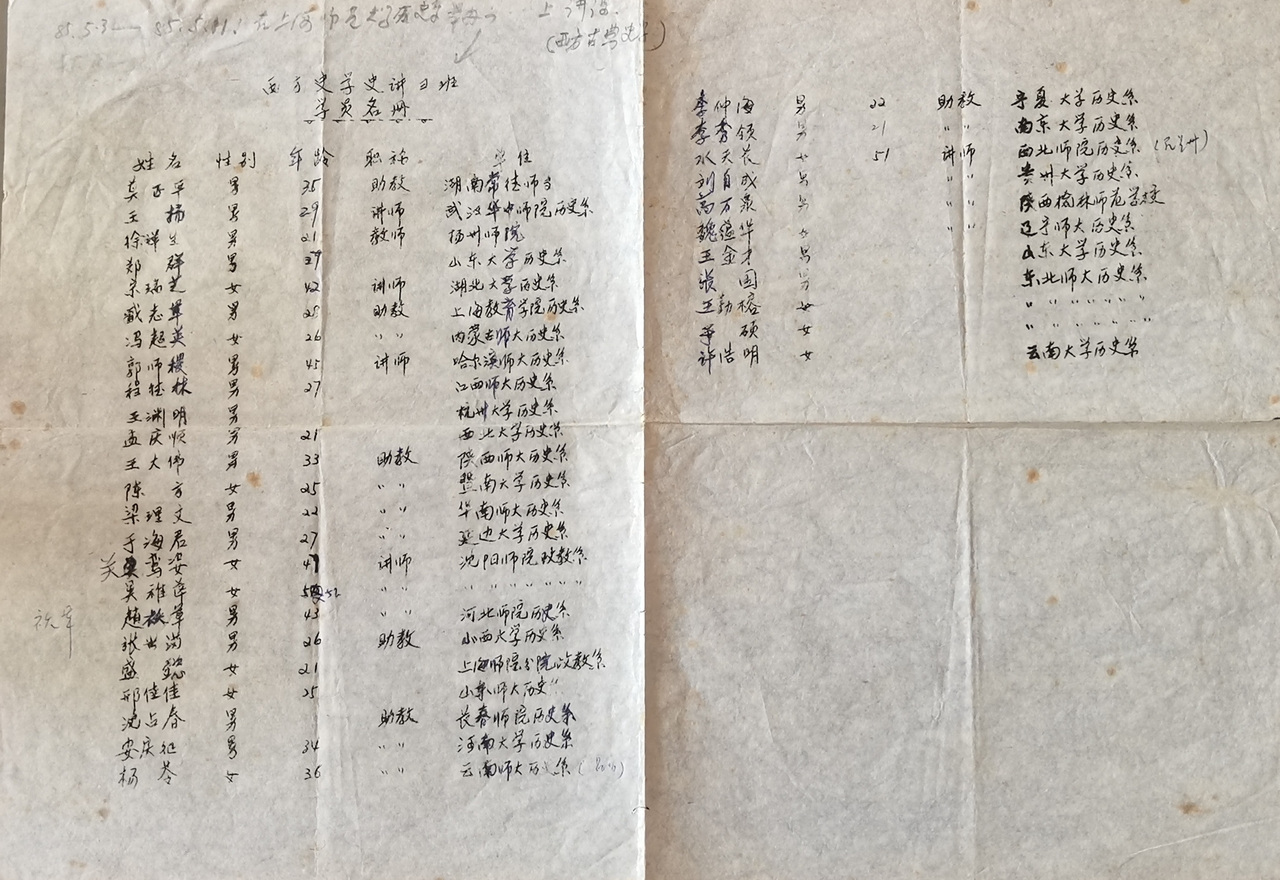 85.5.3— 85.5.11. 在上海师范大学历史系 上讲课.
(西方古典史学)
西方史学史讲习班
学员名册
姓名 性别 年龄 职称 单位
平 男 35 助教 湖南常德师专
王扬 男 29 讲师 武汉华中师院历史系
徐祥生 男 21 教师 扬州师院
郑群 男 29 山东大学历史系
瑞芝 女 42 讲师 湖北大学历史系
戴志军 男 28 助教 上海教育学院历史系
冯超英 女 26 〃 〃 内蒙古师大历史系
郭师稷 男 45 讲师 哈尔滨师大历史系
程桂林 男 27 江西师大历史系
王渊明 男 杭州大学历史系
孟庆顺 男 21 西北大学历史系
王大伟 男 33 助教 陕西师大历史系
陈方 女 25 〃 〃 暨南大学历史系
梁理文 男 22 〃 〃 华南师大历史系
于海君 男 27 〃 〃 延边大学历史系
关鸾姿 女 47 讲师 沈阳师院政教系
吴雅萍 女 52 〃 〃 〃 〃 〃 〃 〃 〃
赵軼峯 男 43 〃 〃 河北师院历史系
张 男 26 助教 山西大学历史系
盛懿 女 21 上海师院分院政教系
邢佳佳 女 25 山东师大历史
沈占春 男 助教 长春师院历史系
安庆征 男 34 〃 〃 河南大学历史系
杨苓 女 36 〃 〃 云南师大历史系
李仲海 男 22 助教 宁夏大学历史系
李秀领 男 21 〃 〃 南京大学历史系
水天花 女 51 讲师 西北师院历史系
刘自成 男 〃 〃 贵州大学历史系
高万泉 男 〃 〃 陕西榆林师范学校
魏蕴华 女 〃 〃 辽宁师大历史系
王金才 男 山东大学历史系
张国 男 东北师大历史系
王勤榕 女 〃 〃 〃 〃 〃 〃
硕 女 〃 〃 〃 〃 〃 〃
许浩明 女 云南大学历史系